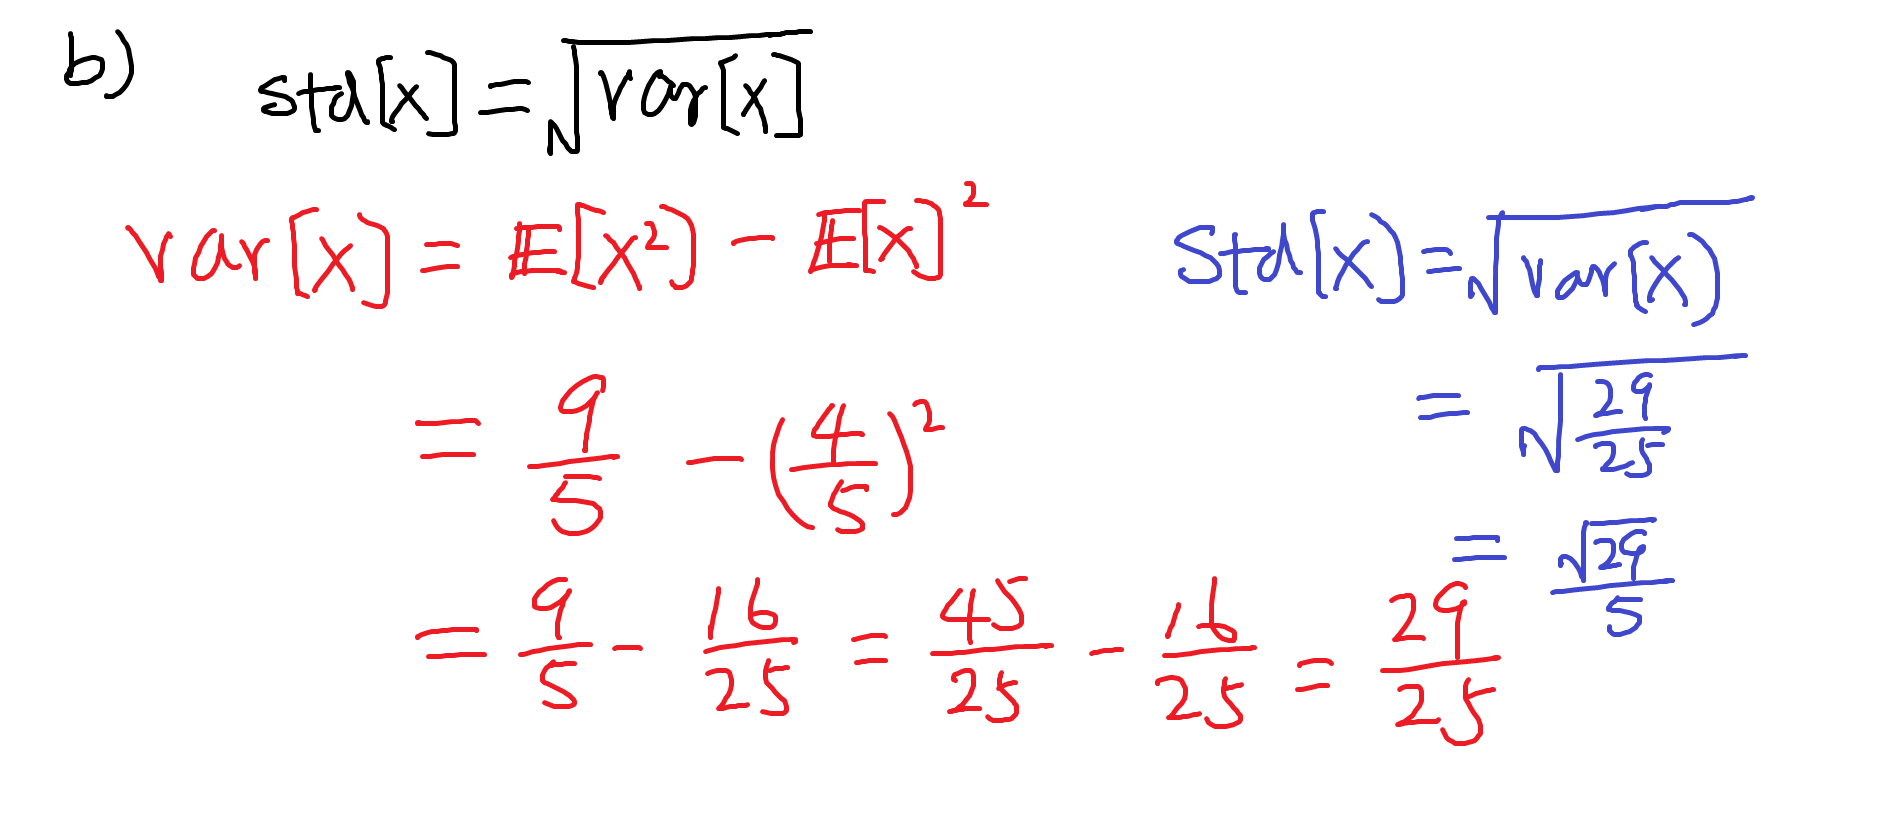 b) std[x] = √var[x]
var[x] = 𝔼[x²] - 𝔼[x]²
= 9/5 - (4/5)²
= 9/5 - 16/25 = 45/25 - 16/25 = 29/25
Std[x] = √var[x]
= √29/25
= √29/5